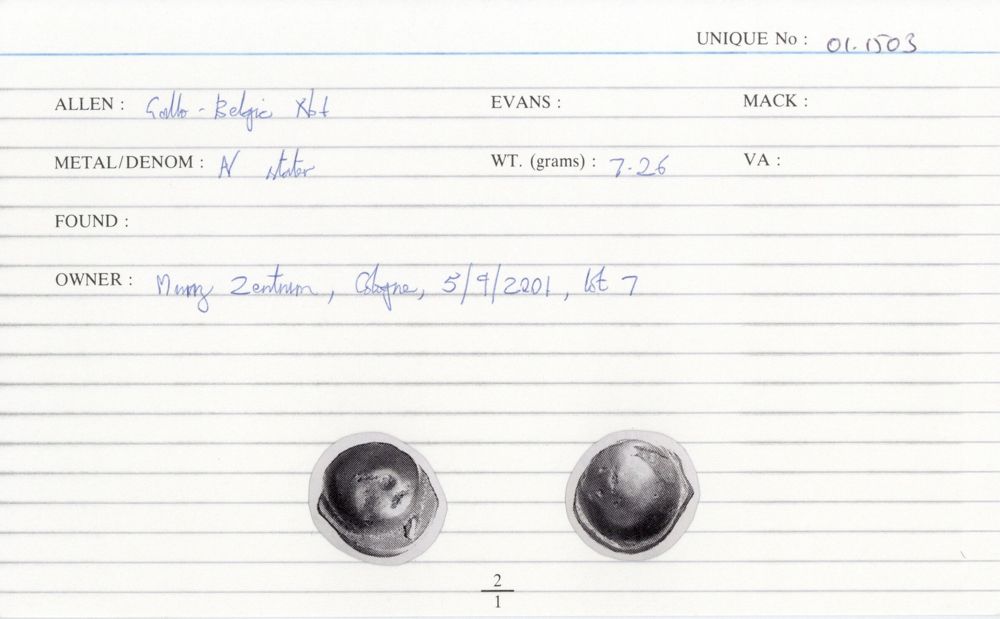 UNIQUE No : 01.1503
ALLEN : Gallo-Belgic Xb1 EVANS : MACK :
METAL/DENOM : AV stater WT. (grams) : 7.26 VA :
FOUND :
OWNER : Munz Zentrum, Cologne, 5/9/2001, lot 7
2
1